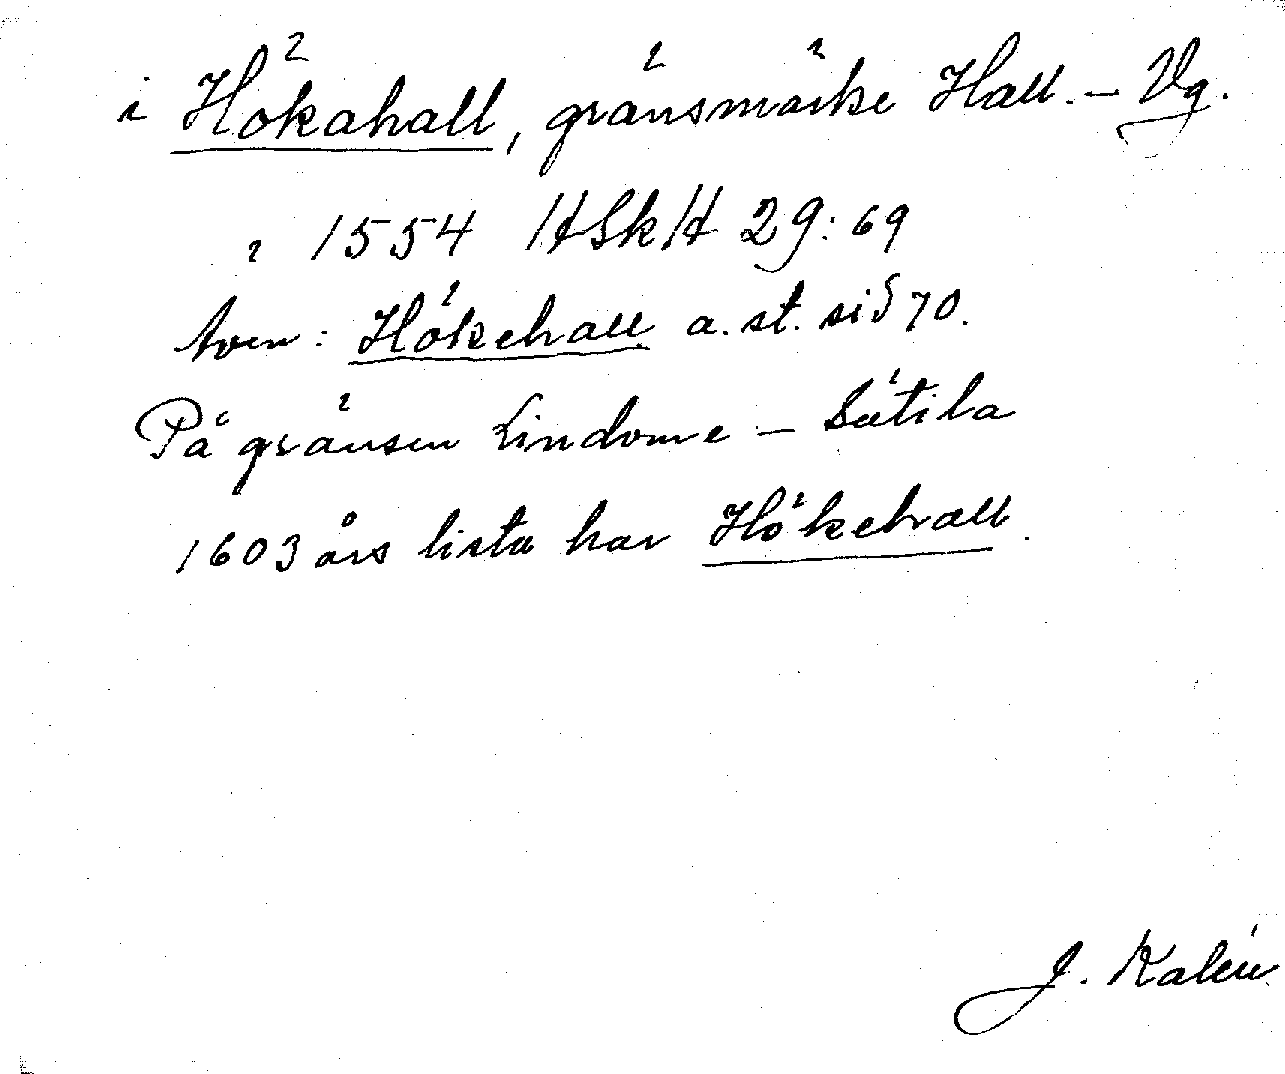 i Hökahall, gränsmärke Hall. – Vg.
, 1554 HSkH 29:69
Även: Hökehall a. st. sid 70.
På gränsen Lindome – Sätila
1603 års lista har Hökehall.
J. Kalén